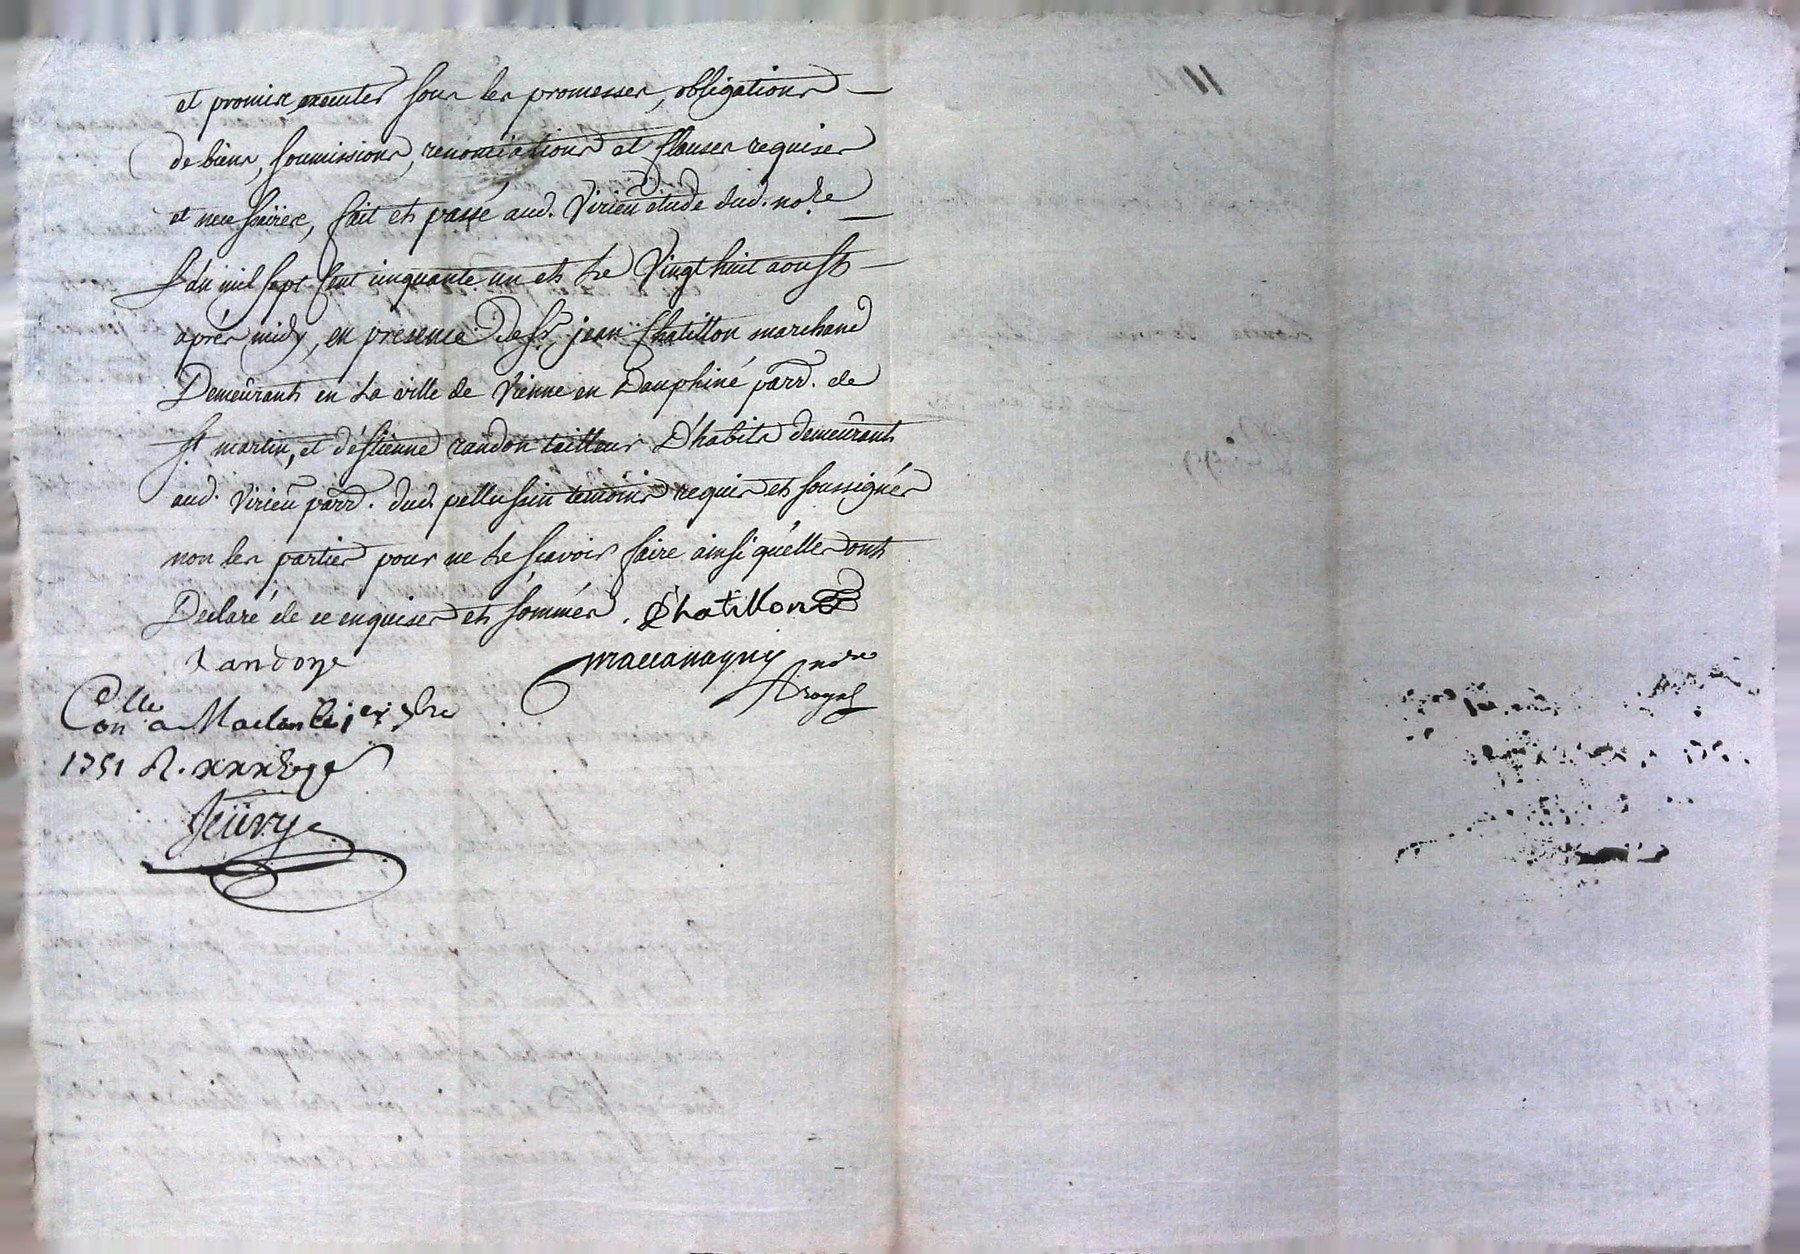 et promise executer sous les promesses, obligations
de biens, soumissions, renonciations et clauses requises
et necessaires, fait et passé aud. Virieu étude dud. nore
L'an mil sept cent cinquante un et le vingt huit aoust
après midy, en presence de sr. jean Chatillon marchand
Demeûrant en la ville de Vienne en Dauphiné parr. de
st martin, et d'éstienne randon tailleur D'habits demeûrant
aud. Virieu parr. dud. pellussin temoins requis et soussignés
non les parties pour ne le sçavoir faire ainsi qu'elles ont
Declaré de ce enquises et sommées. Chatillon
Randon
nore
royal
Con.lle a Maclan le 1er 7bre
1751 R.